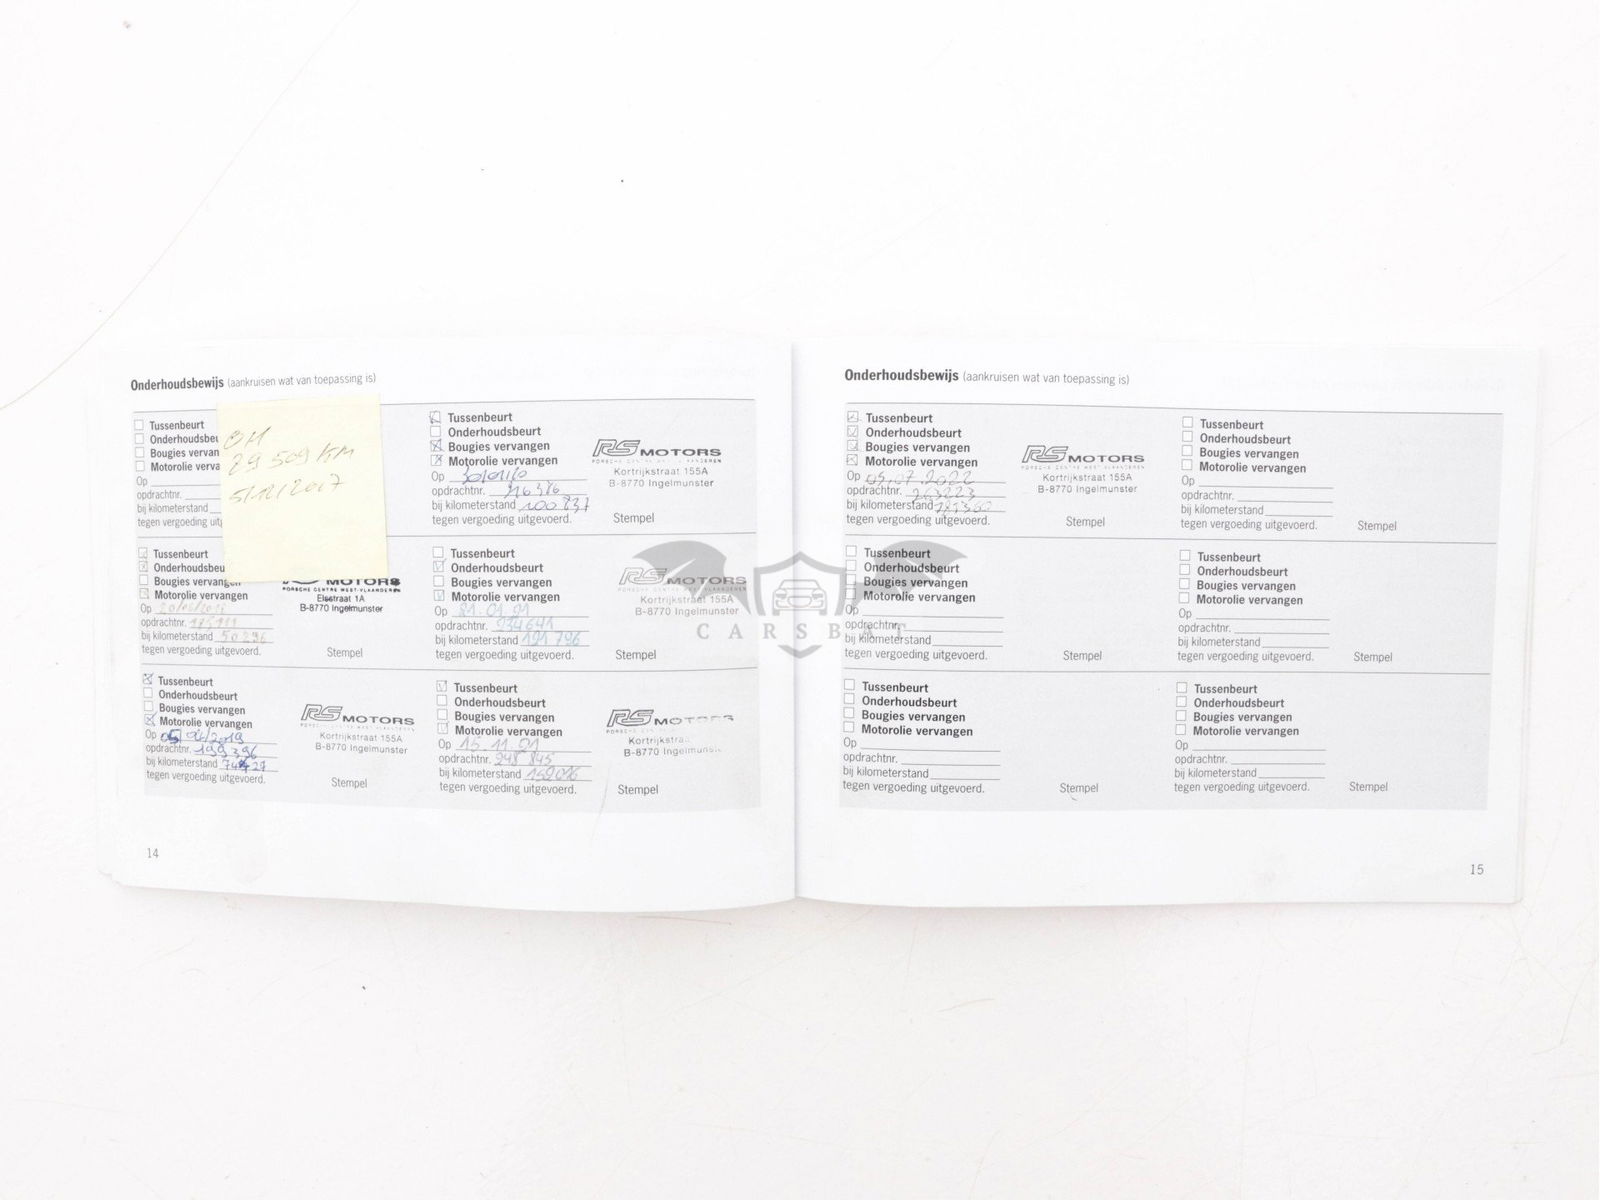 Onderhoudsbewijs (aankruisen wat van toepassing is)
Tussenbeurt
Onderhoudsbeu
Bougies vervan
Motorolie verva
Op
opdrachtnr.
bij kilometerstand
tegen vergoeding uit
29 509 KM
5/12/2017
Tussenbeurt
Onderhoudsbeu
Bougies vervangen
Motorolie vervangen
Op 20/06/2018
opdrachtnr.
bij kilometerstand 50296
tegen vergoeding uitgevoerd.
MOTORS
PORSCHE CENTRE WEST-VLAANDEREN
Elsstraat 1A
B-8770 Ingelmunster
Stempel
Tussenbeurt
Onderhoudsbeurt
Bougies vervangen
Motorolie vervangen
Op
opdrachtnr. 199396
bij kilometerstand
tegen vergoeding uitgevoerd.
RS MOTORS
Kortrijkstraat 155A
B-8770 Ingelmunster
Stempel
Tussenbeurt
Onderhoudsbeurt
Bougies vervangen
Motorolie vervangen
Op
opdrachtnr.
bij kilometerstand 100837
tegen vergoeding uitgevoerd.
RS MOTORS
PORSCHE CENTRE WEST-VLAANDEREN
Kortrijkstraat 155A
B-8770 Ingelmunster
Stempel
Tussenbeurt
Onderhoudsbeurt
Bougies vervangen
Motorolie vervangen
Op
opdrachtnr. 234641
bij kilometerstand 121796
tegen vergoeding uitgevoerd.
RS MOTORS
Kortrijkstraat 155A
B-8770 Ingelmunster
Stempel
Tussenbeurt
Onderhoudsbeurt
Bougies vervangen
Motorolie vervangen
Op 15.11.21
opdrachtnr. 248845
bij kilometerstand
tegen vergoeding uitgevoerd.
RS MOTORS
Kortrijkstra
B-8770 Ingelmuns
Stempel
14
Onderhoudsbewijs (aankruisen wat van toepassing is)
Tussenbeurt
Onderhoudsbeurt
Bougies vervangen
Motorolie vervangen
Op 05.07.2022
opdrachtnr. 263223
bij kilometerstand
tegen vergoeding uitgevoerd.
RS MOTORS
PORSCHE CENTRE WEST-VLAANDEREN
Kortrijkstraat 155A
B-8770 Ingelmunster
Stempel
Tussenbeurt
Onderhoudsbeurt
Bougies vervangen
Motorolie vervangen
Op
opdrachtnr.
bij kilometerstand
tegen vergoeding uitgevoerd.
Stempel
Tussenbeurt
Onderhoudsbeurt
Bougies vervangen
Motorolie vervangen
Op
opdrachtnr.
bij kilometerstand
tegen vergoeding uitgevoerd.
Stempel
Tussenbeurt
Onderhoudsbeurt
Bougies vervangen
Motorolie vervangen
Op
opdrachtnr.
bij kilometerstand
tegen vergoeding uitgevoerd.
Stempel
Tussenbeurt
Onderhoudsbeurt
Bougies vervangen
Motorolie vervangen
Op
opdrachtnr.
bij kilometerstand
tegen vergoeding uitgevoerd.
Stempel
Tussenbeurt
Onderhoudsbeurt
Bougies vervangen
Motorolie vervangen
Op
opdrachtnr.
bij kilometerstand
tegen vergoeding uitgevoerd.
Stempel
15
CARSBAT